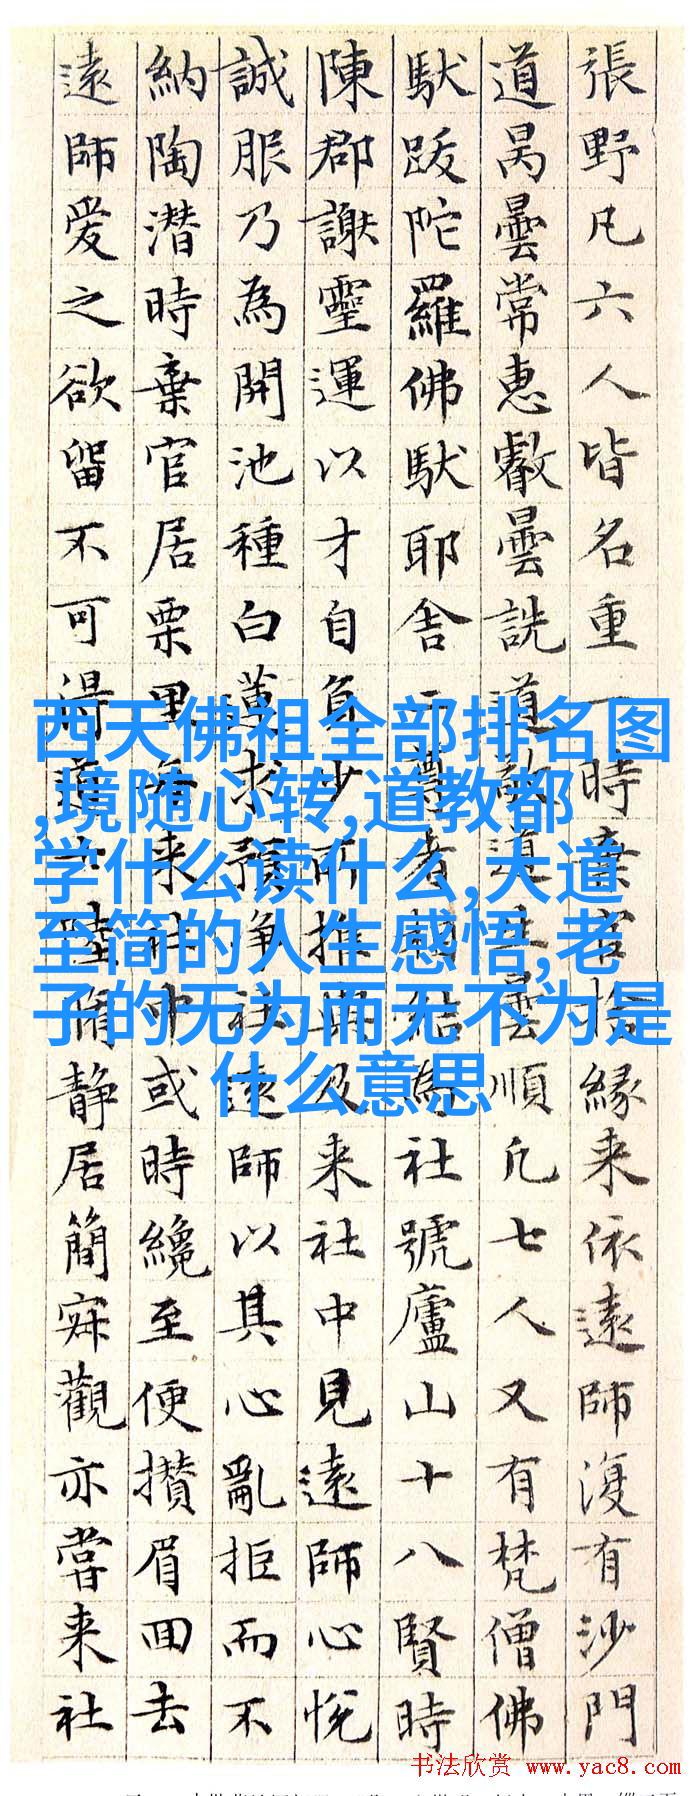 張野凡六人皆名重一時棄官捨緣来依遠師復有沙門
道昺曇常惠叡曇詵道敬道生曇順凡七人又有梵僧佛
馱跋陀羅佛馱耶舍二尊者相結為社號廬山十八賢時
陳郡謝靈運以才自負少所推與及来社中見遠師心悅
誠服乃為開池種白蓮求預淨社遠師以其心亂拒而不
納陶潛時棄官居栗里每来社中或時纔至便攢眉回去
遠師愛之欲留不可得道士陸脩靜居簡寂觀亦嘗来社
西天佛祖全部排名图
,境随心转,道教都
学什么读什么,大道
至简的人生感悟,老
子的无为而无不为是
什么意思
书法欣赏 www.yac8.com